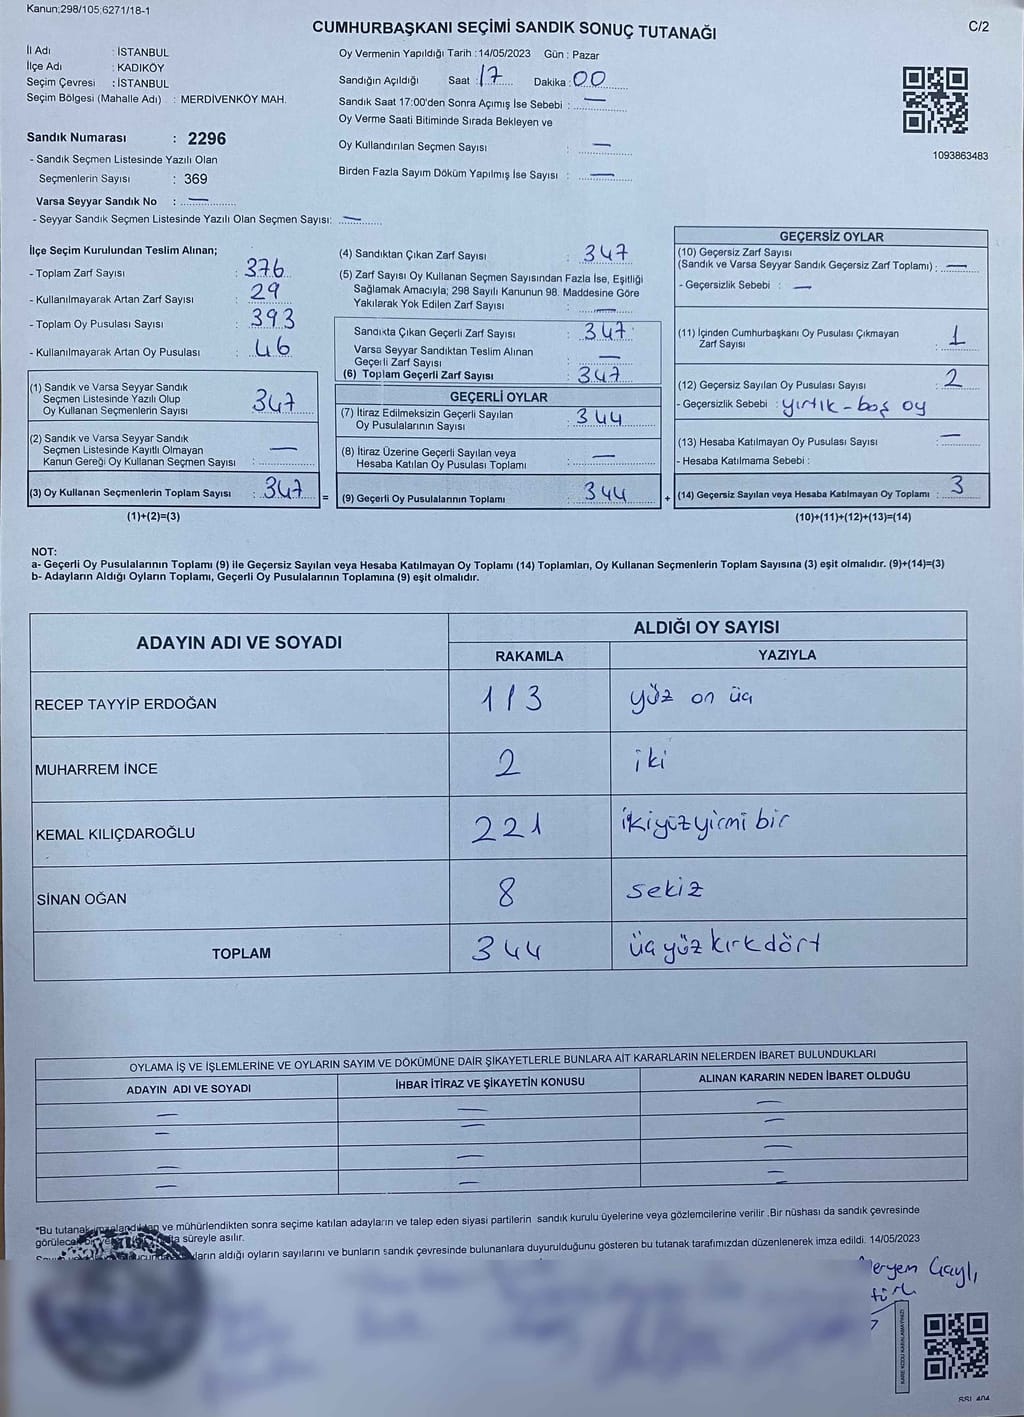 Kanun;298/105;6271/18-1
CUMHURBAŞKANI SEÇİMİ SANDIK SONUÇ TUTANAĞI
C/2
İl Adı : İSTANBUL
İlçe Adı : KADIKÖY
Seçim Çevresi : İSTANBUL
Seçim Bölgesi (Mahalle Adı) : MERDİVENKÖY MAH.
Sandık Numarası : 2296
- Sandık Seçmen Listesinde Yazılı Olan
Seçmenlerin Sayısı : 369
Varsa Seyyar Sandık No : —
- Seyyar Sandık Seçmen Listesinde Yazılı Olan Seçmen Sayısı: —
Oy Vermenin Yapıldığı Tarih :14/05/2023 Gün : Pazar
Sandığın Açıldığı Saat : 17 Dakika : 00
Sandık Saat 17:00'den Sonra Açımış İse Sebebi : —
Oy Verme Saati Bitiminde Sırada Bekleyen ve
Oy Kullandırılan Seçmen Sayısı : —
Birden Fazla Sayım Döküm Yapılmış İse Sayısı : —
1093863483
İlçe Seçim Kurulundan Teslim Alınan;
- Toplam Zarf Sayısı : 376
- Kullanılmayarak Artan Zarf Sayısı : 29
- Toplam Oy Pusulası Sayısı : 393
- Kullanılmayarak Artan Oy Pusulası : 46
(1) Sandık ve Varsa Seyyar Sandık
Seçmen Listesinde Yazılı Olup
Oy Kullanan Seçmenlerin Sayısı : 347
(2) Sandık ve Varsa Seyyar Sandık
Seçmen Listesinde Kayıtlı Olmayan
Kanun Gereği Oy Kullanan Seçmen Sayısı : —
(3) Oy Kullanan Seçmenlerin Toplam Sayısı : 347
(1)+(2)=(3)
(4) Sandıktan Çıkan Zarf Sayısı : 347
(5) Zarf Sayısı Oy Kullanan Seçmen Sayısından Fazla İse, Eşitliği
Sağlamak Amacıyla; 298 Sayılı Kanunun 98. Maddesine Göre
Yakılarak Yok Edilen Zarf Sayısı : —
Sandıkta Çıkan Geçerli Zarf Sayısı : 347
Varsa Seyyar Sandıktan Teslim Alınan
Geçerli Zarf Sayısı : —
(6) Toplam Geçerli Zarf Sayısı : 347
GEÇERLİ OYLAR
(7) İtiraz Edilmeksizin Geçerli Sayılan
Oy Pusulalarının Sayısı : 344
(8) İtiraz Üzerine Geçerli Sayılan veya
Hesaba Katılan Oy Pusulası Toplamı : —
= (9) Geçerli Oy Pusulalarının Toplamı : 344
GEÇERSİZ OYLAR
(10) Geçersiz Zarf Sayısı
(Sandık ve Varsa Seyyar Sandık Geçersiz Zarf Toplamı) : —
- Geçersizlik Sebebi : —
(11) İçinden Cumhurbaşkanı Oy Pusulası Çıkmayan
Zarf Sayısı : 1
(12) Geçersiz Sayılan Oy Pusulası Sayısı : 2
- Geçersizlik Sebebi : yırtık - boş oy
(13) Hesaba Katılmayan Oy Pusulası Sayısı : —
- Hesaba Katılmama Sebebi :
+ (14) Geçersiz Sayılan veya Hesaba Katılmayan Oy Toplamı : 3
(10)+(11)+(12)+(13)=(14)
NOT:
a- Geçerli Oy Pusulalarının Toplamı (9) ile Geçersiz Sayılan veya Hesaba Katılmayan Oy Toplamı (14) Toplamları, Oy Kullanan Seçmenlerin Toplam Sayısına (3) eşit olmalıdır. (9)+(14)=(3)
b- Adayların Aldığı Oyların Toplamı, Geçerli Oy Pusulalarının Toplamına (9) eşit olmalıdır.
ADAYIN ADI VE SOYADI
ALDIĞI OY SAYISI
RAKAMLA YAZIYLA
RECEP TAYYİP ERDOĞAN 113 yüz on üç
MUHARREM İNCE 2 iki
KEMAL KILIÇDAROĞLU 221 ikiyüzyirmi bir
SİNAN OĞAN 8 sekiz
TOPLAM 344 üç yüz kırk dört
OYLAMA İŞ VE İŞLEMLERİNE VE OYLARIN SAYIM VE DÖKÜMÜNE DAİR ŞİKAYETLERLE BUNLARA AİT KARARLARIN NELERDEN İBARET BULUNDUKLARI
ADAYIN ADI VE SOYADI İHBAR İTİRAZ VE ŞİKAYETİN KONUSU ALINAN KARARIN NEDEN İBARET OLDUĞU
— — —
— — —
— — —
— — —
*Bu tutanak imzalandıktan ve mühürlendikten sonra seçime katılan adayların ve talep eden siyasi partilerin sandık kurulu üyelerine veya gözlemcilerine verilir .Bir nüshası da sandık çevresinde
görülecek süreyle asılır.
aldığı oyların sayılarını ve bunların sandık çevresinde bulunanlara duyurulduğunu gösteren bu tutanak tarafımızdan düzenlenerek imza edildi. 14/05/2023
KARE KODU KARALAMAYINIZ!